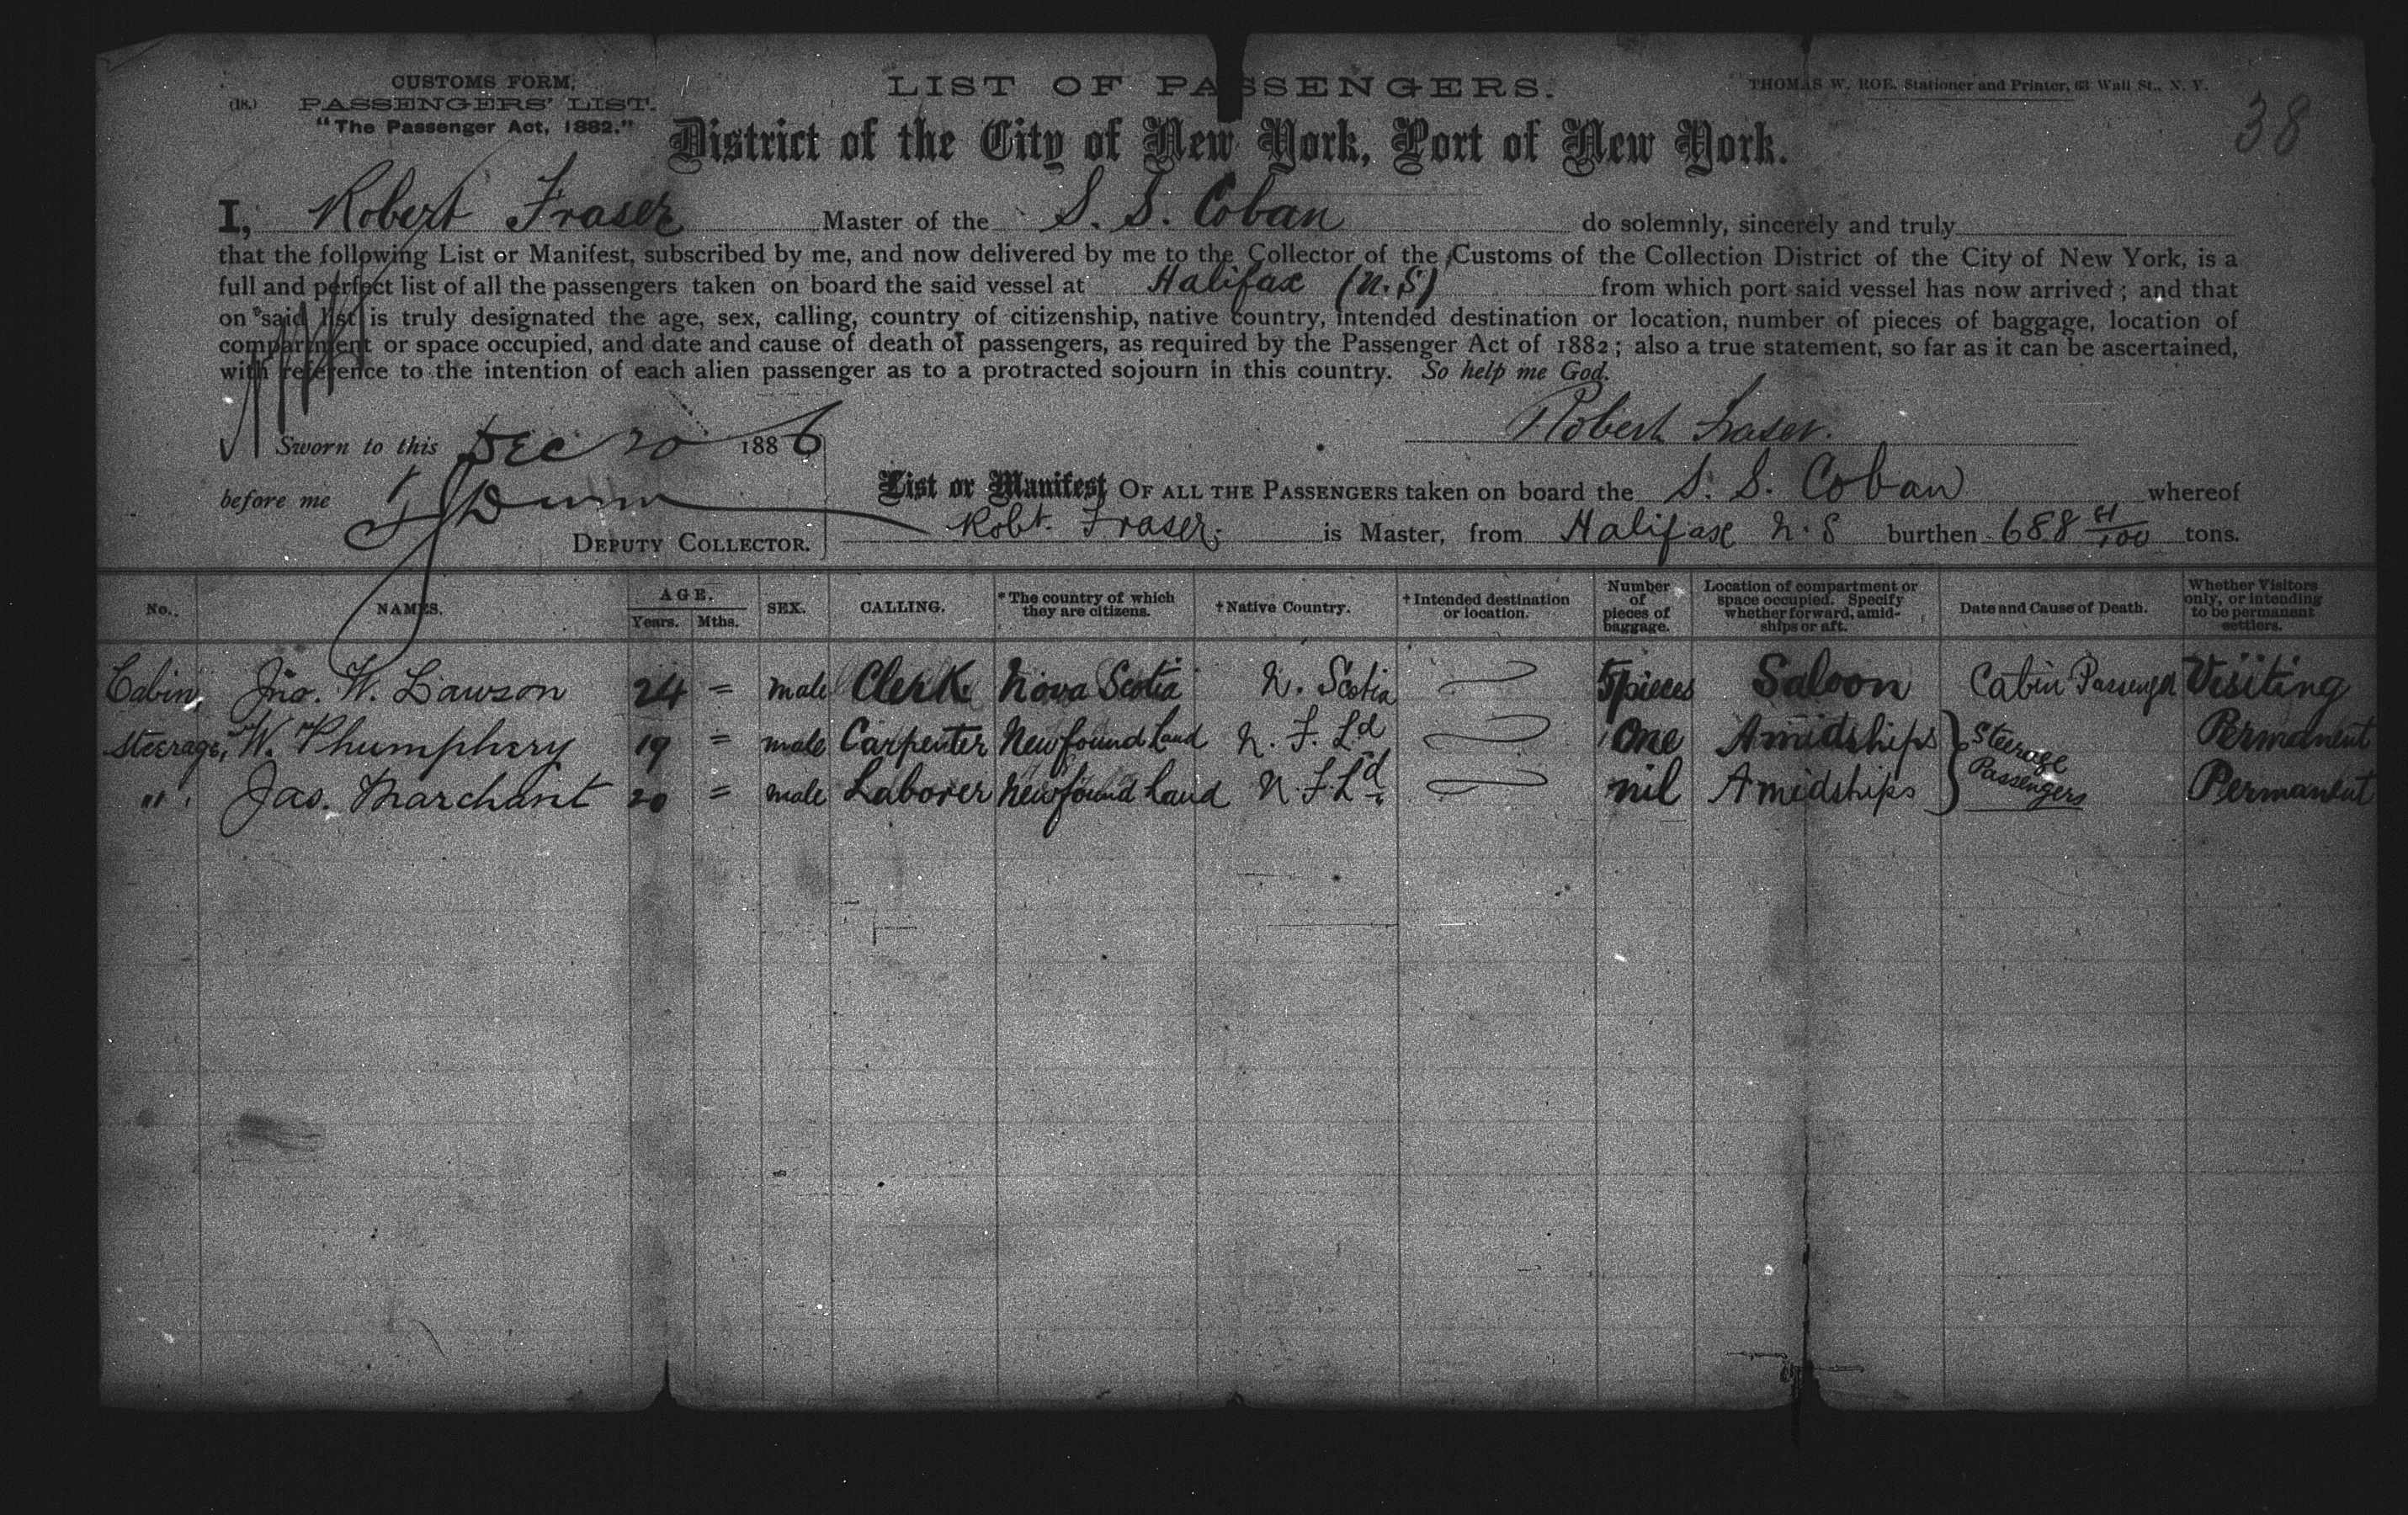 CUSTOMS FORM,
(18.) PASSENGERS' LIST.
"The Passenger Act, 1882."
LIST OF PASSENGERS.
THOMAS W. ROE, Stationer and Printer, 63 Wall St., N. Y.
38
District of the City of New York, Port of New York.
I, Robert Fraser Master of the S. S. Coban do solemnly, sincerely and truly
that the following List or Manifest, subscribed by me, and now delivered by me to the Collector of the Customs of the Collection District of the City of New York, is a
full and perfect list of all the passengers taken on board the said vessel at Halifax (N.S) from which port said vessel has now arrived; and that
on said list is truly designated the age, sex, calling, country of citizenship, native country, intended destination or location, number of pieces of baggage, location of
compartment or space occupied, and date and cause of death of passengers, as required by the Passenger Act of 1882; also a true statement, so far as it can be ascertained,
with reference to the intention of each alien passenger as to a protracted sojourn in this country. So help me God.
Robert Fraser.
Sworn to this Dec 20 1886
before me Dunn
DEPUTY COLLECTOR.
List or Manifest OF ALL THE PASSENGERS taken on board the S. S. Coban whereof
Robt. Fraser. is Master, from Halifax N. S burthen 688 81/100 tons.
No. NAMES. AGE. Years. Mths. SEX. CALLING. *The country of which they are citizens. †Native Country. †Intended destination or location. Number of pieces of baggage. Location of compartment or space occupied. Specify whether forward, amidships or aft. Date and Cause of Death. Whether Visitors only, or intending to be permanent settlers.
Cabin, Jno. W. Dawson 24 = male Clerk Nova Scotia N. Scotia 5 pieces Saloon Cabin Passenger Visiting
Steerage, W. Phumphery 19 = male Carpenter Newfoundland N. F. Ld One Amidships Steerage Passengers Permanent
" " Jas. Marchant 20 = male Laborer Newfoundland N. F. Ld nil Amidships Permanent